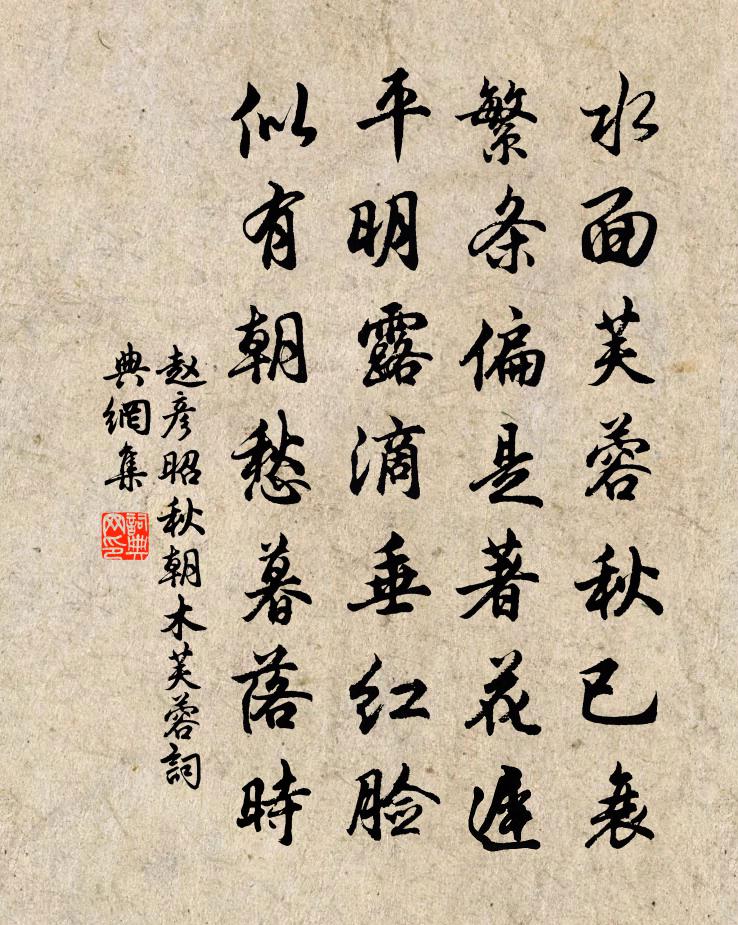 水面芙蓉秋已衰
繁条偏是著花遲
平明露滴垂红脸
似有朝愁暮落時
赵彦昭秋朝木芙蓉詞
典網集
詞典
网印